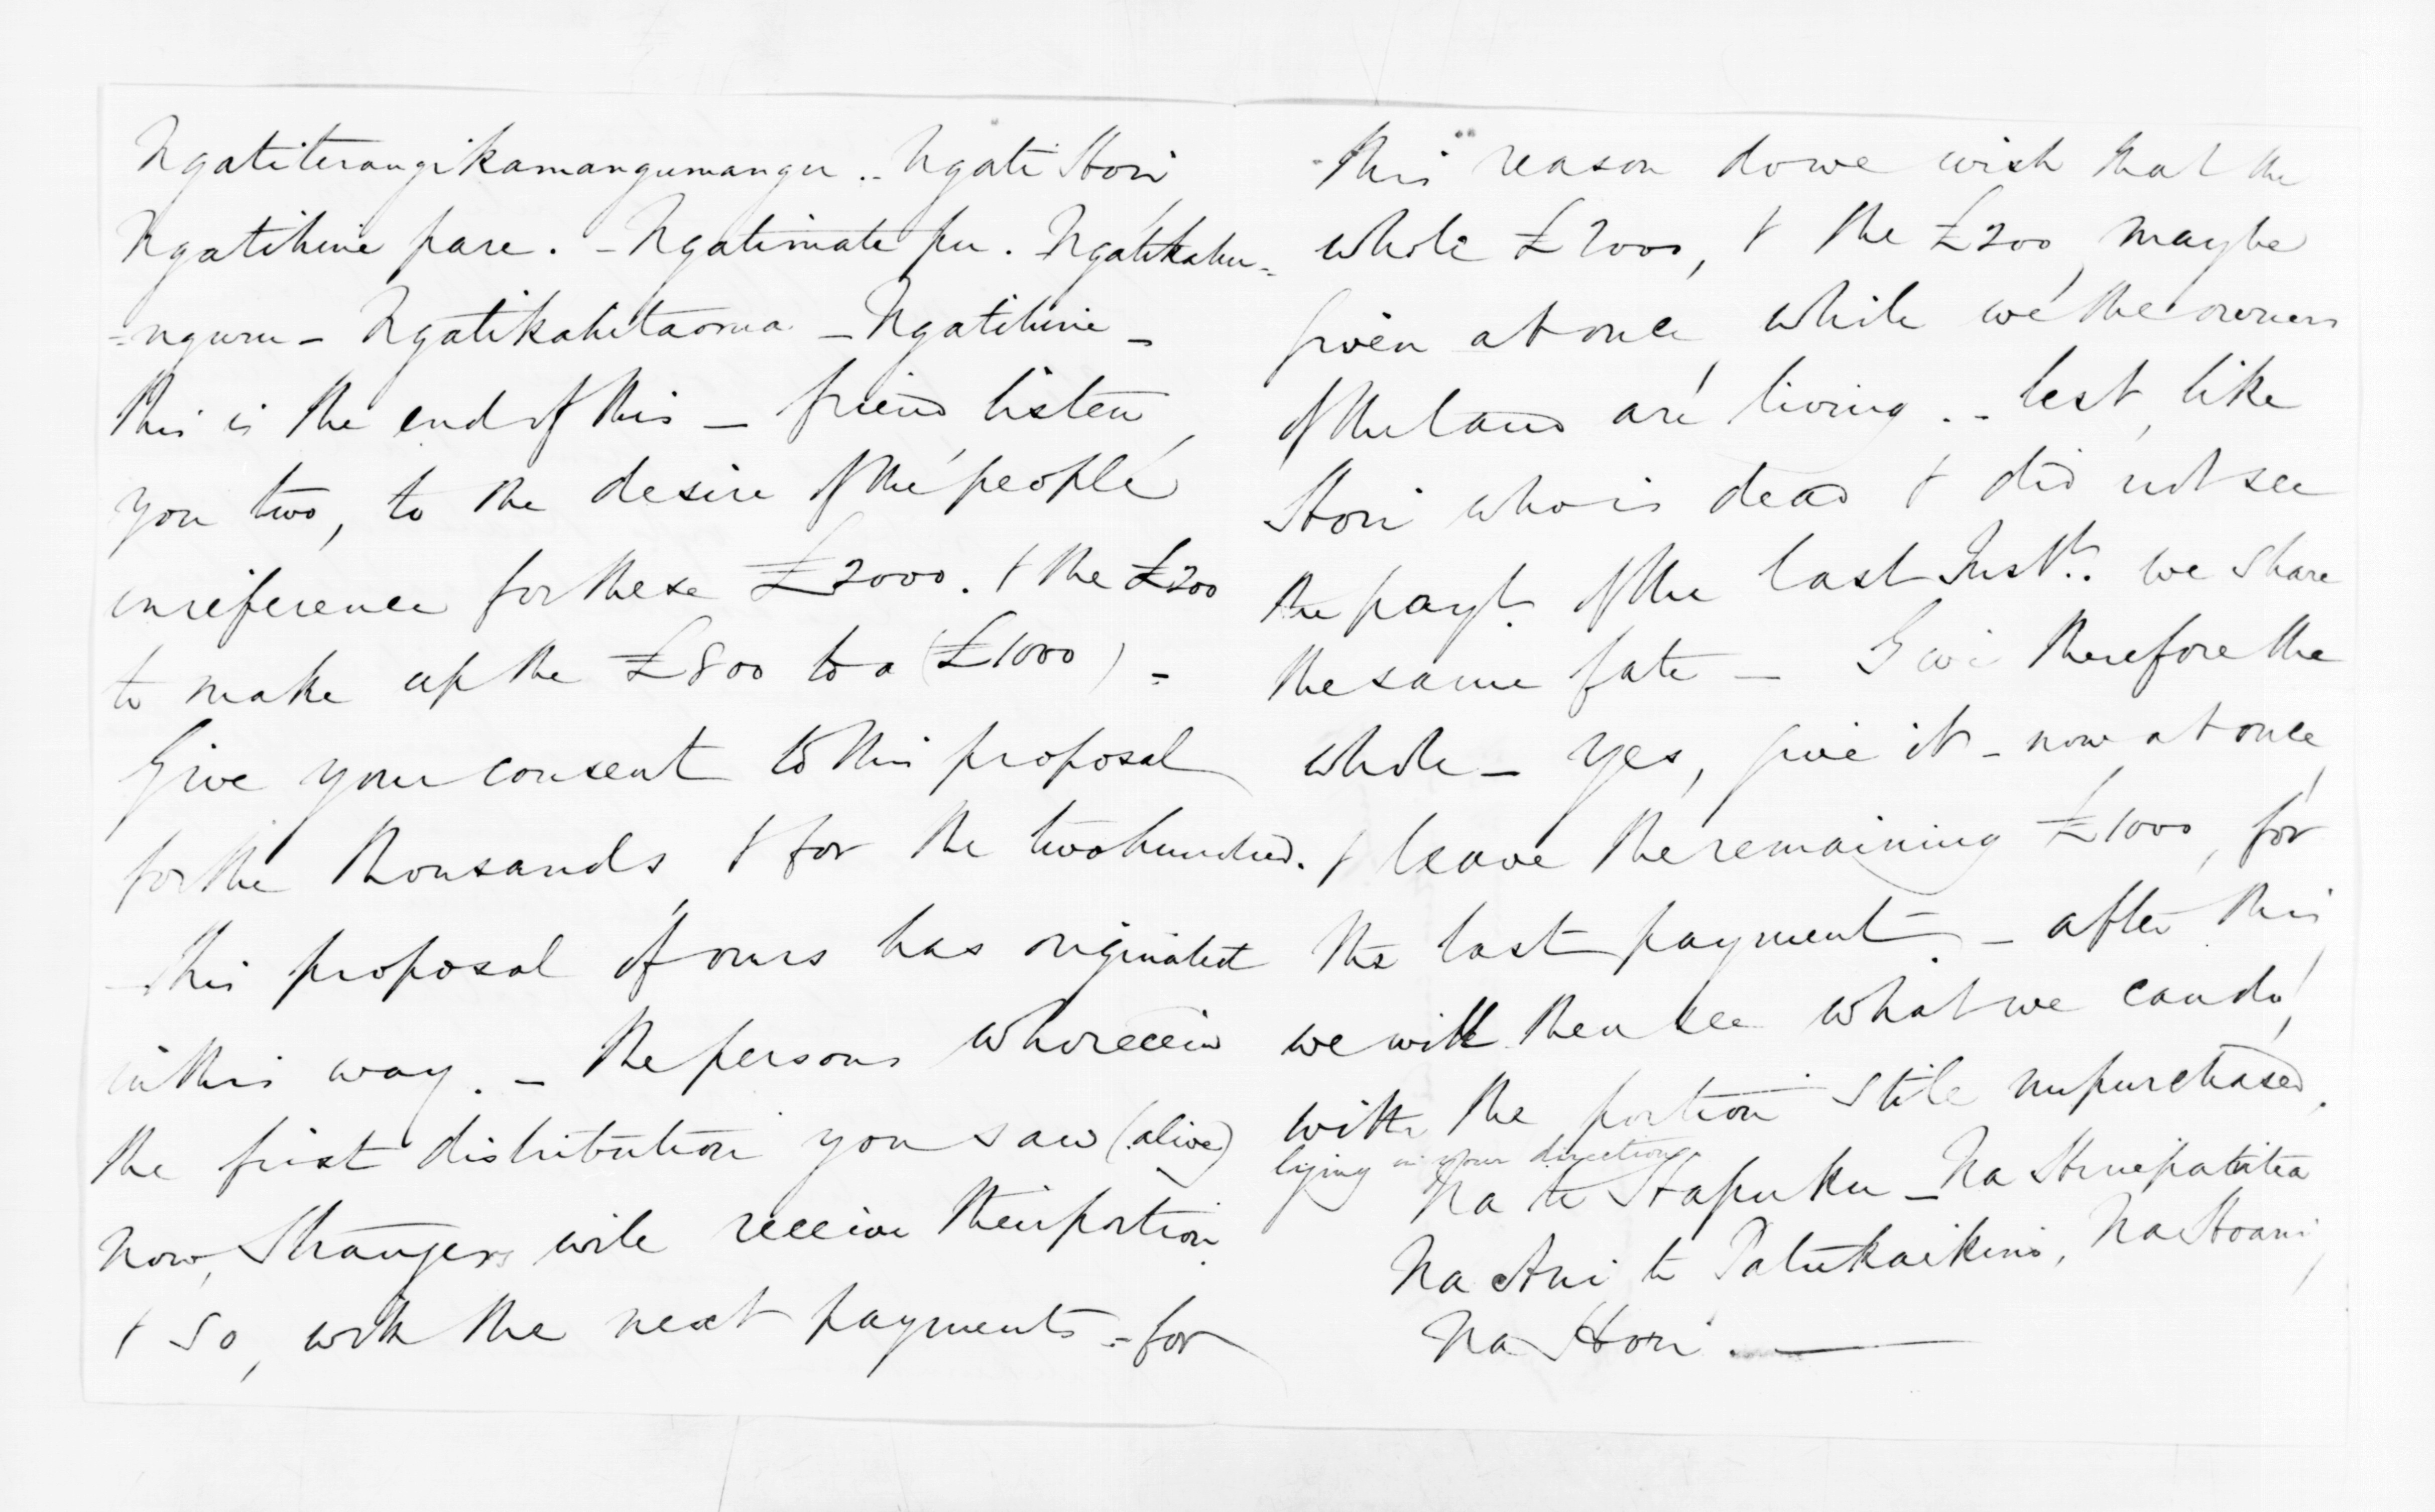 Ngatiterangikamangumangu .. Ngati Hori
Ngatihine pare. - Ngatimate pu. Ngatikahu=
=nguru - Ngatikahitaorua - Ngatihine -
this is the end of this - friend listen,
you two, to the desire of the people
in reference for these £2000. & the £200
to make up the £800 to a (£1000) =
Give your consent to this proposal
for the thousands, & for the two hundred.
- this proposal of ours has originated
in this way. - The persons who received
the first distribution you saw (alive)
now, Strangers will receive their portion.
& so, with the next payments = for
this reason do we wish that the
whole £2000, & the £200, may be
given at once, while we the owners
of the land are living .- lest, like
Hori who is dead & did not see
the payt. of the last Instt.. we share
the same fate - Give therefore the
whole - Yes, give it - now at once,
& leave the remaining £1000, for
the last payment. - after this,
we will then see what we can do,
with the portion still unpurchased.
lying in your direction.
Na te Hapuku - Na
Na Ani te Patukaikino, Na Hoani,
Na Hori . -